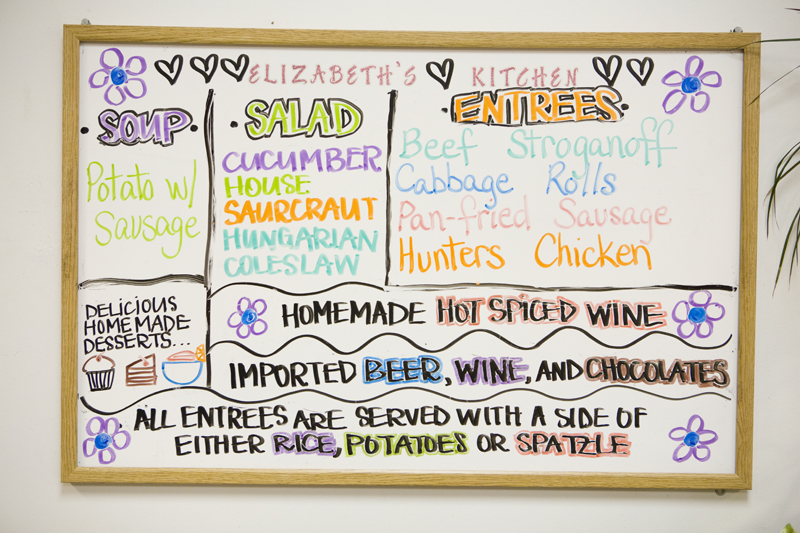 ELIZABETH'S KITCHEN
SOUP
Potato w/
Sausage
SALAD
CUCUMBER
HOUSE
SAURCRAUT
HUNGARIAN
COLESLAW
ENTREES
Beef Stroganoff
Cabbage Rolls
Pan-fried Sausage
Hunters Chicken
DELICIOUS
HOMEMADE
DESSERTS...
HOMEMADE HOT SPICED WINE
IMPORTED BEER, WINE, AND CHOCOLATES
ALL ENTREES ARE SERVED WITH A SIDE OF
EITHER RICE, POTATOES OR SPATZLE